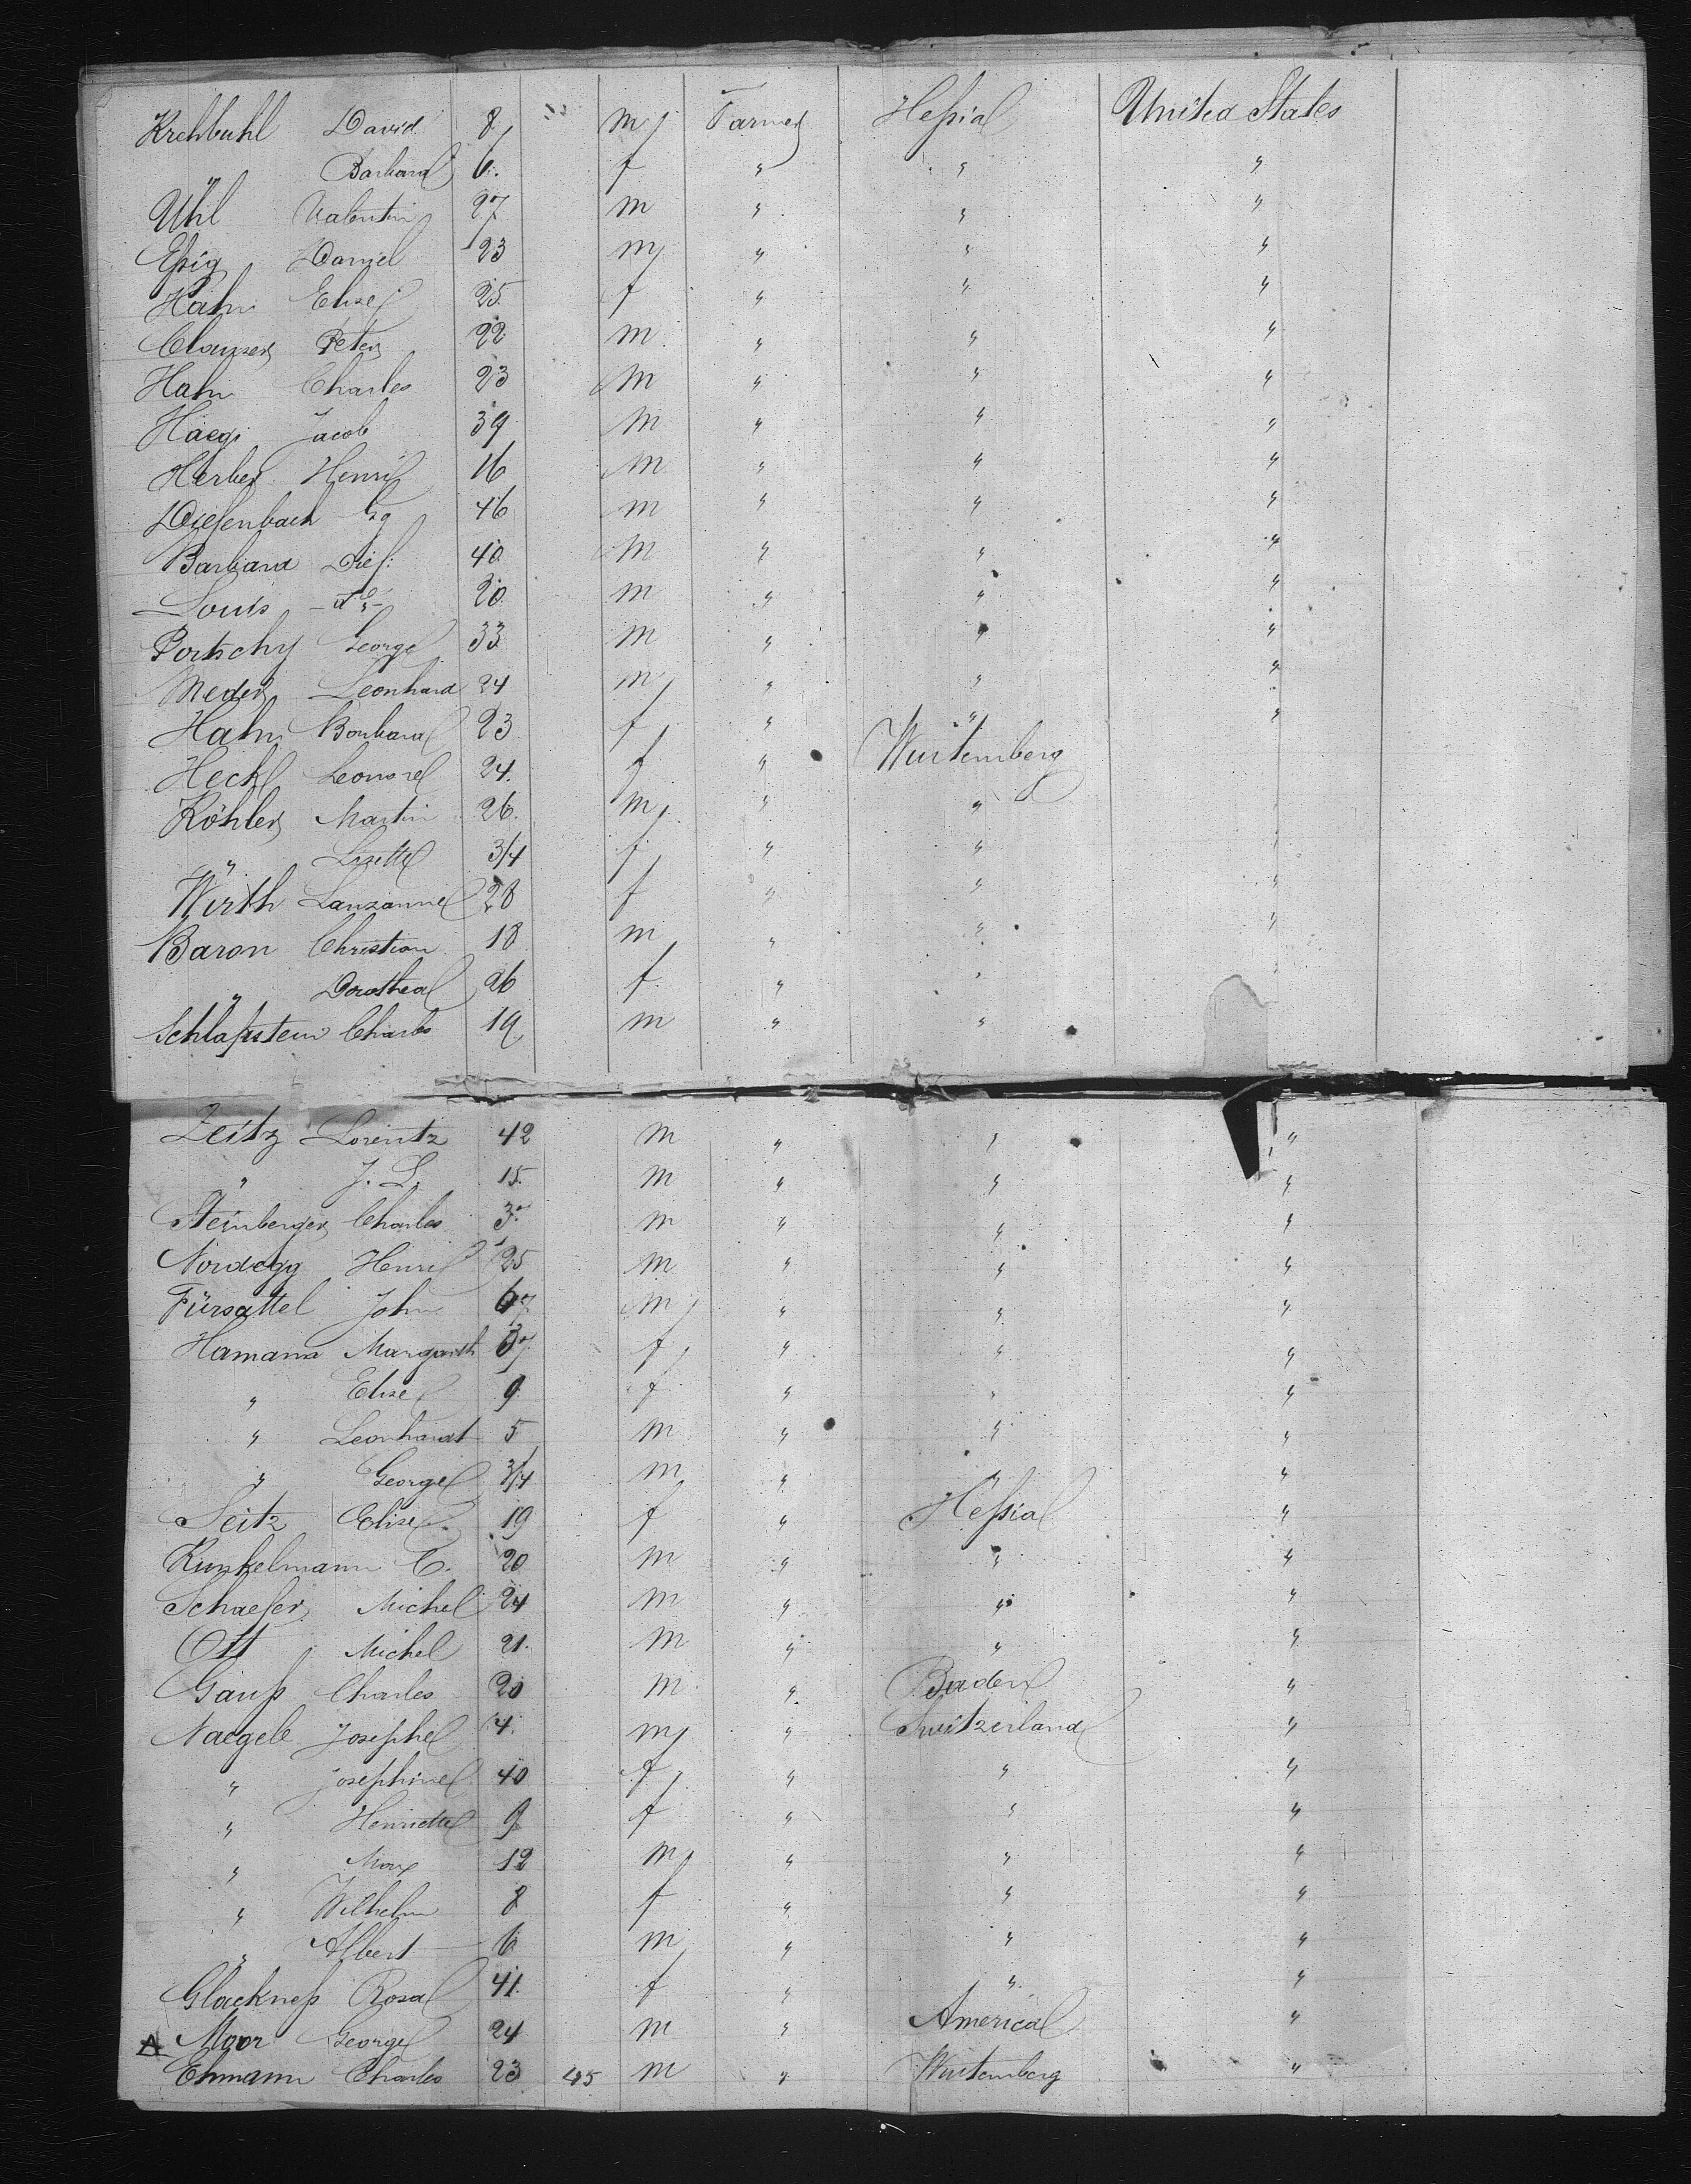 Krehbuhl David 8 m Farmer Hessia United States
" Barbara 6 f " " "
Uhl Valentin 27 m " " "
Essig Daniel 23 m " " "
Hahn Elise 25 f " " "
Clauser Peter 22 m " " "
Hahn Charles 23 m " " "
Haegi Jacob 39 m " " "
Herber Henri 16 m " " "
Diefenbach Gg 46 m " " "
Barbara Dief: 40 m " " "
Louis - do - 20 m " " "
Portschy George 33 m " " "
Meder Leonhard 24 m " " "
Hahn Barbara 23 f " " "
Heckl Leonore 24 f " Wurtemberg
Köhler Martin 26 m " "
" Lisette 3/4 f " "
Wirth Lanzanne 28 f " " "
Baron Christian 18 m " " "
" Dorothea 26 f " "
Schlassstein Charles 19 m " "
Zeitz Lorentz 42 m " " "
" J. L. 15 m " " "
Steinberger Charles m " " "
Nordegg Henri 25 m " " "
Fürsattel John 67 m " " "
Hamann Margareth f " " "
" Elise 9 f " " "
" Leonhardt 5 m " " "
" George 3/4 m " " "
Seitz Elise 19 f " Hessia "
Kunkelmann C. 20 m " " "
Schaefer Michel 24 m " " "
Ott Michel 21 m " " "
Gauss Charles 20 m " Baden "
Naegele Josephe 4 m " Switzerland "
" Josephine 40 f " " "
" Henriette 9 f " " "
" Max 12 m " " "
" Wilhelm 8 f " " "
" Albert 6 m " " "
Glackness Rosa 41 f " " "
A Moor George 24 m " America "
Ehmann Charles 23 45 m " Wurtemberg "